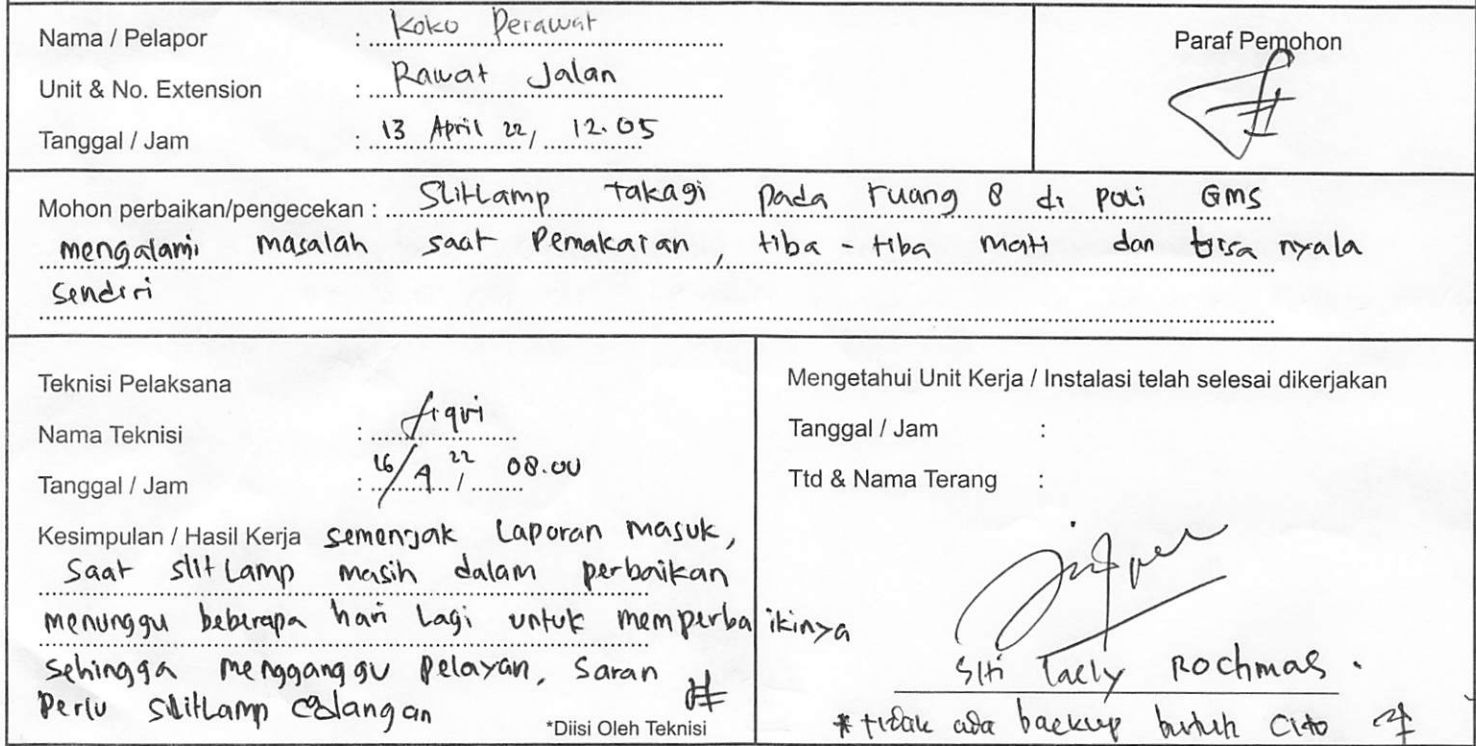 Nama / Pelapor : Koko Perawat
Unit & No. Extension : Rawat Jalan
Tanggal / Jam : 13 April 22, 12.05
Paraf Pemohon
Mohon perbaikan/pengecekan : Slitlamp takagi pada ruang 8 di poli GMS
mengalami masalah saat Pemakaian, tiba - tiba mati dan bisa nyala
sendiri
Teknisi Pelaksana
Nama Teknisi : fiqri
Tanggal / Jam : 16/4 22 / 08.00
Kesimpulan / Hasil Kerja semenjak Laporan masuk,
Saat slitlamp masih dalam perbaikan
menunggu beberapa hari lagi untuk memperbaikinya
sehingga mengganggu pelayan, saran
Perlu slitlamp cadangan
*Diisi Oleh Teknisi
Mengetahui Unit Kerja / Instalasi telah selesai dikerjakan
Tanggal / Jam :
Ttd & Nama Terang :
Siti Laely Rochmas.
* tidak ada backup butuh Cito